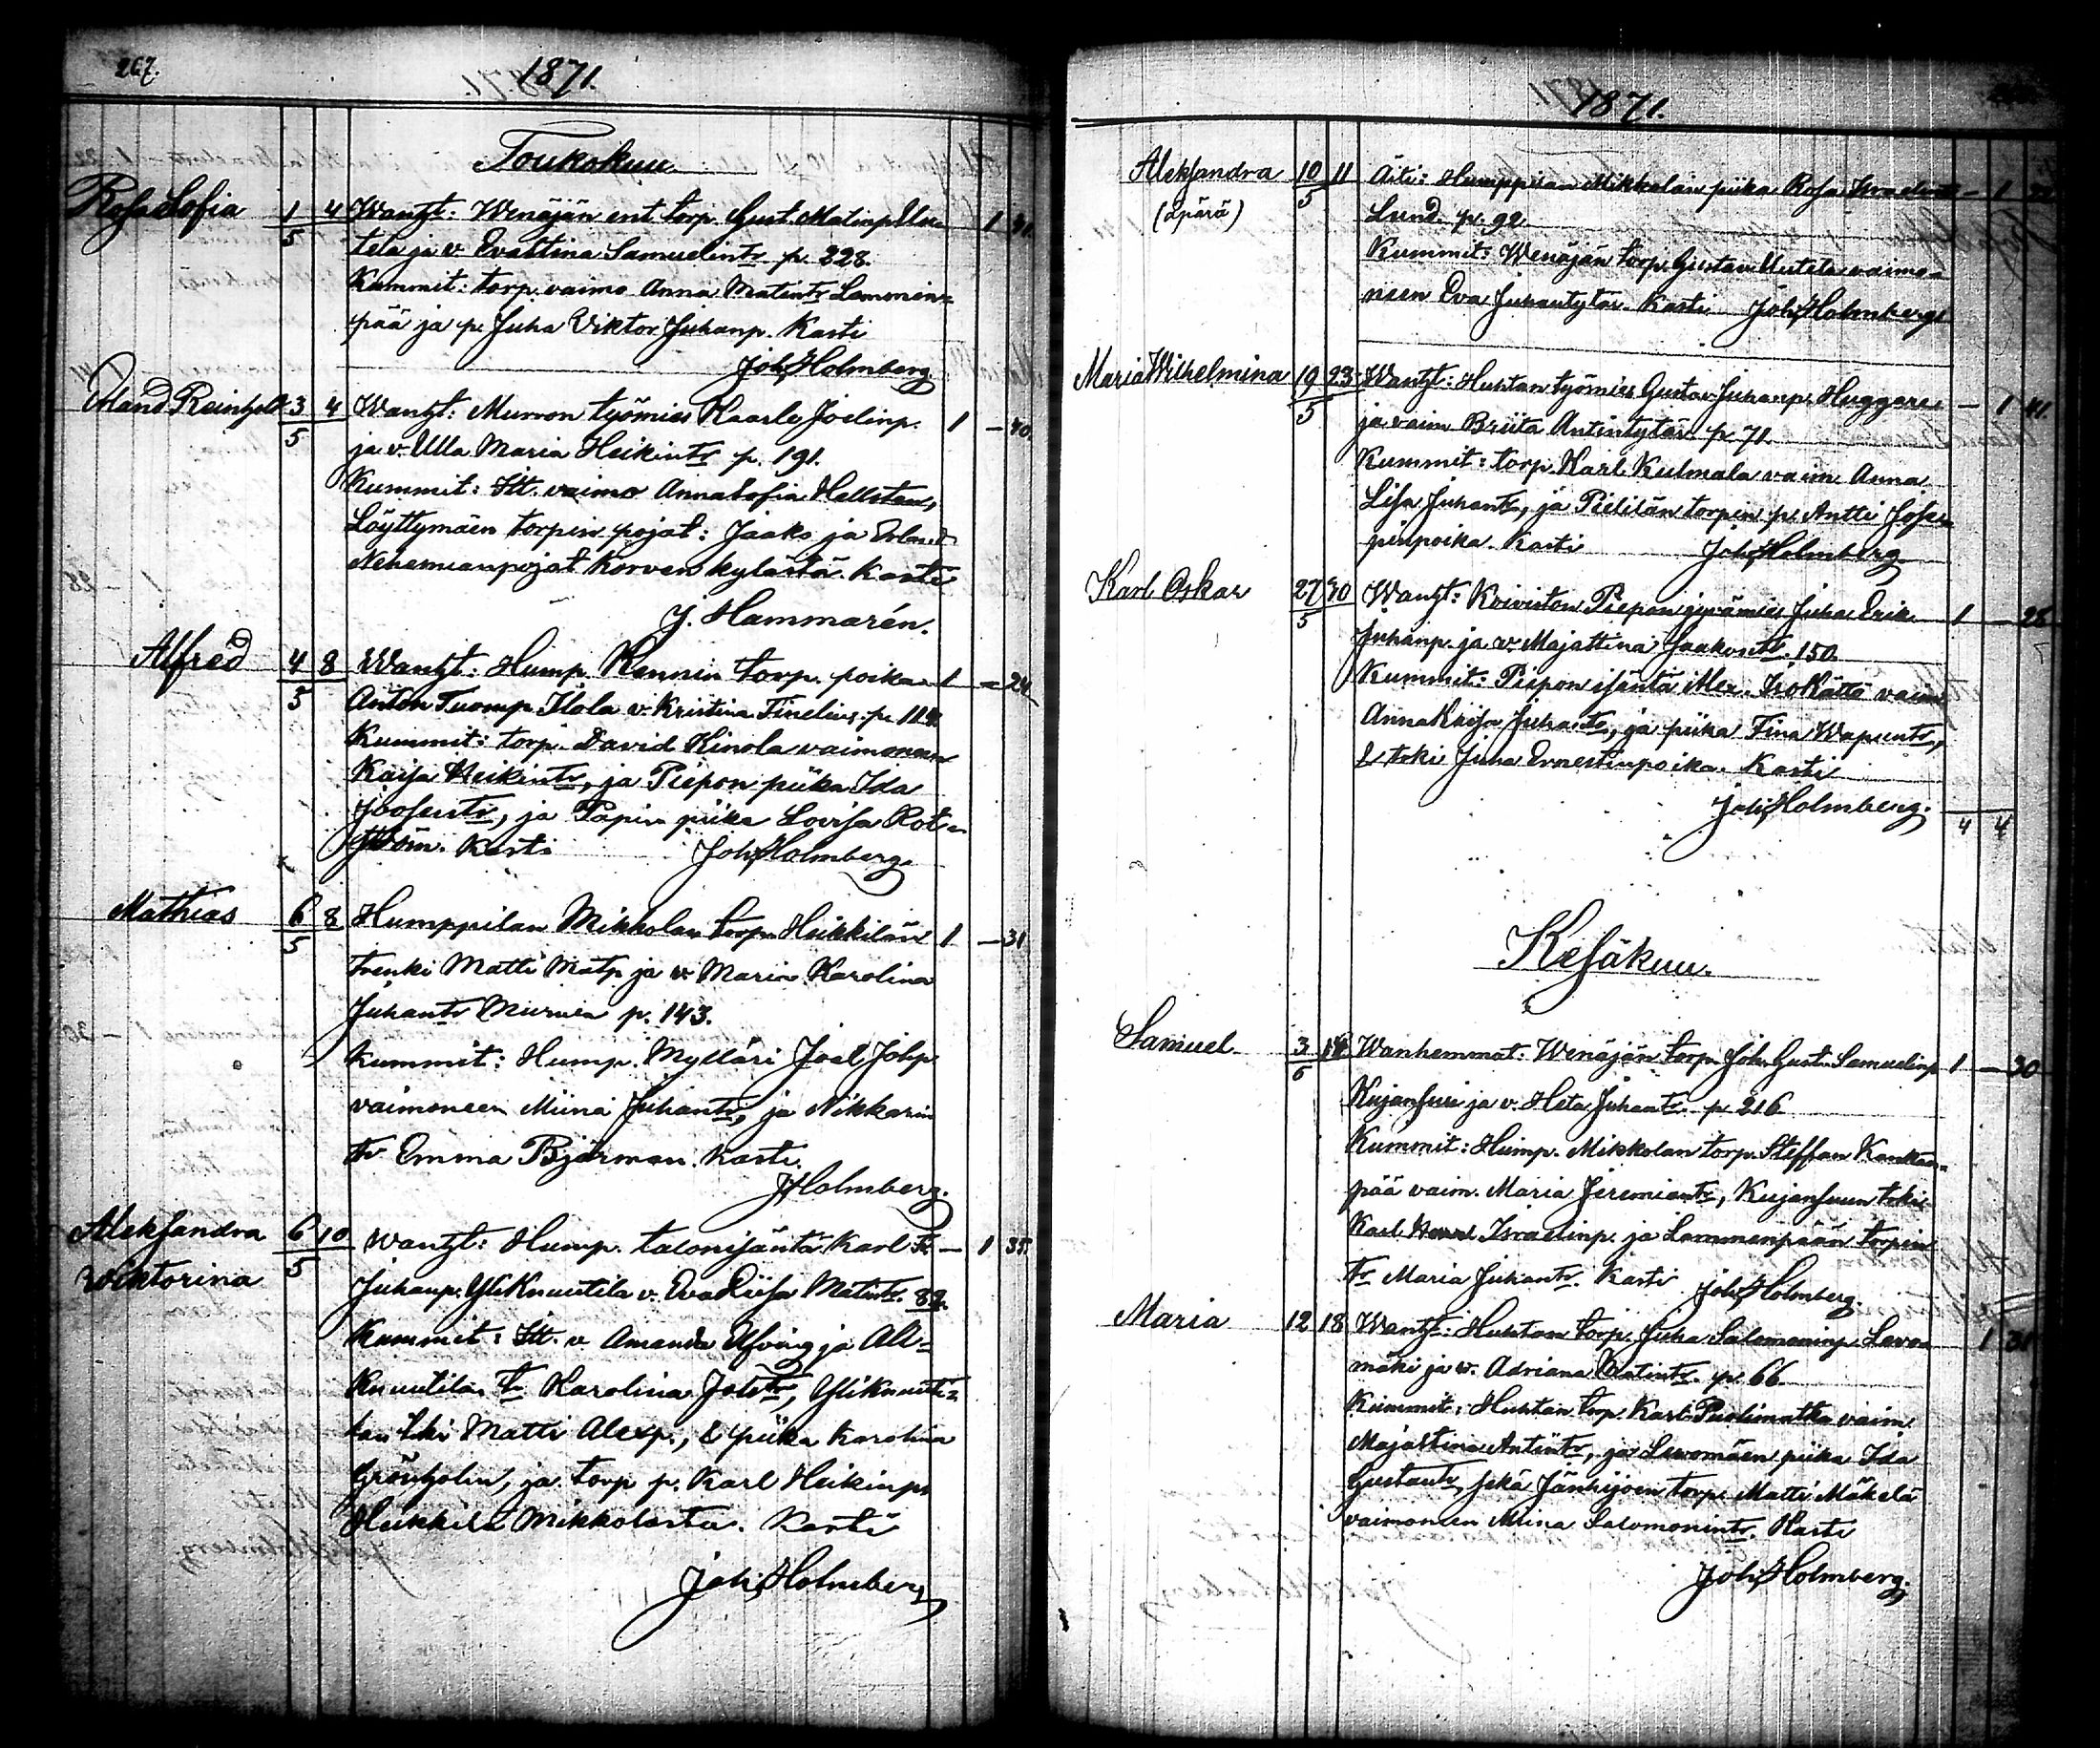 267.
1871.
Toukokuu
Rosa Sofia 1/5 4 Wanht: Wenäjän ent. torp. Gust. Matinp. Uu- 1 41
tela ja v. Evastina Samuelintr p. 228.
Kummit: torp. vaimo Anna Matintr Lammin-
pää ja p. Juha Viktor Juhanp. Kasti
Joh. Holmberg.
Erland Reinholt 3/5 4 Wanht: Murron työmies Kaarle Joelinp. 1 – 40
ja v. Ulla Maria Heikintr p. 191.
Kummit: Itt. vaimo Anna Sofia Hellsten,
Löyttymäen torpin pojat: Jaako ja Erland
Nehemianpojat Korven kylästä. Kasti
J. Hammarén.
Alfred 4/5 8 Wanht: Hump. Rennin torp. poika 1 – 24
Anton Tuomp. Ilola v. Kristina Finelius. p.
Kummit: torp. David Hinola vaimoneen
Kaisa Heikintr, ja Piepon piika Ida
Joosentr, ja Papin piika Lovisa Rot-
ström. Kasti Joh. Holmberg.
Mathias 6/5 8 Humppilan Mikkolan torp. Heikkilän 1 – 31
trenki Matti Matp. ja v. Maria Karolina
Juhantr Murnia p. 143.
Kummit: Hump. Mylläri Joel Johp.
vaimoneen Miina Juhantr, ja Nikkarin
tr Emma Bjärman. Kasti.
J Holmberg.
Aleksandra 6/5 10 Wanht: Hump. talonisäntä Karl Fr. – 1 35.
Wiktorina
Juhanp. YliKnuutila v. Eva Liisa Matintr. 82.
Kummit: Itt. v. Amanda Elfving ja Ali-
Knuutilan tr Karolina Jostr, YliKnuuti-
lan tki Matti Alexp., & piika Karolina
Grönholm, ja torp. p. Karl Heikinp.
Heikkilä Mikkolasta. Kasti
Joh. Holmberg
1871.
Aleksandra 10/5 11 Äiti: Humppilan Mikkolan piika Rosa Israelintr – 1 22
(Äpärä) Lund. p. 92
Kummit: Wenäjän torp. Gustav Uutela vaimo-
neen Eva Juhantytär. Kasti Joh. Holmberg
Maria Wilhelmina 19/5 23 Wanht: Huhtan työmies Gustav Juhanp. Huggare – 1 41.
ja vaim Briita Antintytär. p. 71
Kummit: torp. Karl Kulmala vaim. Anna
Lisa Juhantr, ja Pielilän torpin p. Antti Jose-
pinpoika. Kasti Joh. Holmberg
Karl Oskar 27/5 30 Wanht: Koiviston Piepon jyvämies Juha Erik 1 – 28
Juhanp. ja v. Majastina Jaakontr. 150.
Kummit: Piepon isäntä Alex. IsoKättö vaim.
Anna Kaisa Juhantr, ja piika Fina Wapuntr,
& tröki Juha Ernestinpoika. Kasti
Joh. Holmberg.
4 4
Kesäkuu.
Samuel 3/6 Wanhemmat: Wenäjän torp. Joh. Gust. Samuelinp. 1 – 30
Kujansuu ja v. Heta Juhantr. p. 216
Kummit: Hump. Mikkolan torp. Steffan Kankaan-
pää vaim. Maria Jeremiantr, Kujansuun tröki
Karl Israelinp. ja Lammenpään torpin
tr Maria Juhantr. Kasti Joh. Holmberg.
Maria 12 18 Wanht: Huhtan torp. Juha Salomoninp. Levo- 1 31
mäki ja v. Adriana Matintr. p. 66.
Kummit: Huhtan torp. Karl Puolimatka vaim.
Majastina Antintr, ja Levomäen piika Ida
Gustavtr, sekä Jänhijoen torp. Matti Mäkelä
vaimoneen Miina Salomonintr. Kasti
Joh. Holmberg.